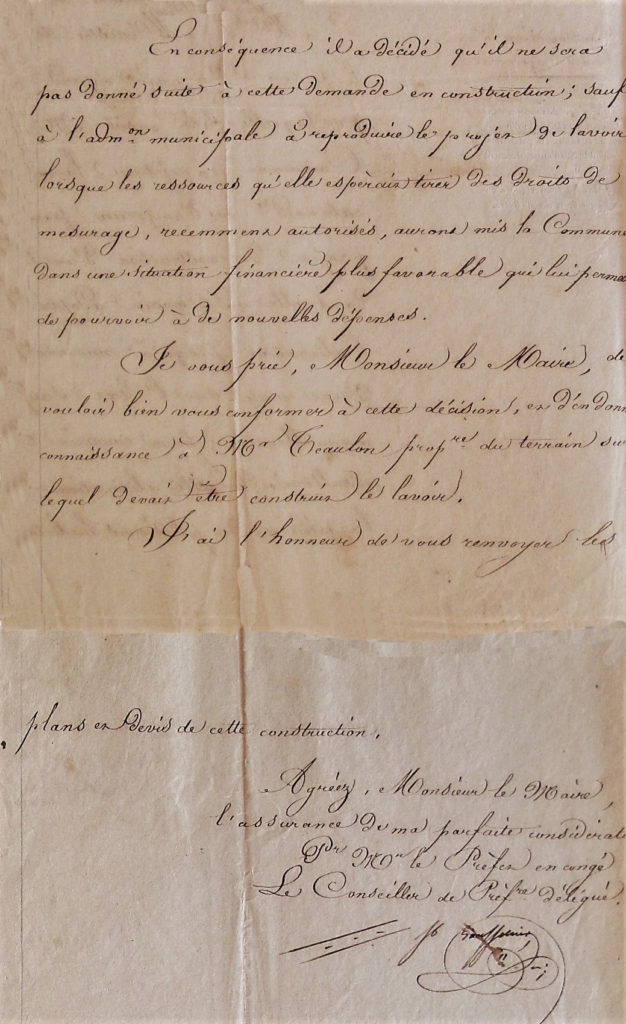 En conséquence il a décidé qu'il ne sera
pas donné suite à cette demande en construction; sauf
à l'adm.on municipale à reproduire le projet de lavoir
lorsque les ressources qu'elle espérait tirer des droits de
mesurage, récemment autorisés, auront mis la Commune
dans une situation financière plus favorable qui lui
de pourvoir à de nouvelles dépenses.
Je vous prie, Monsieur le Maire, de
vouloir bien vous conformer à cette décision, et d'en
connaissance à Mr Teaulon propre. du terrain
lequel devait être construit le lavoir.
J'ai l'honneur de vous renvoyer les
plans et devis de cette construction.
Agréez, Monsieur le Maire,
l'assurance de ma parfaite considérat
Pr Mr le Préfet en congé
Le Conseiller de Préfre délégué.